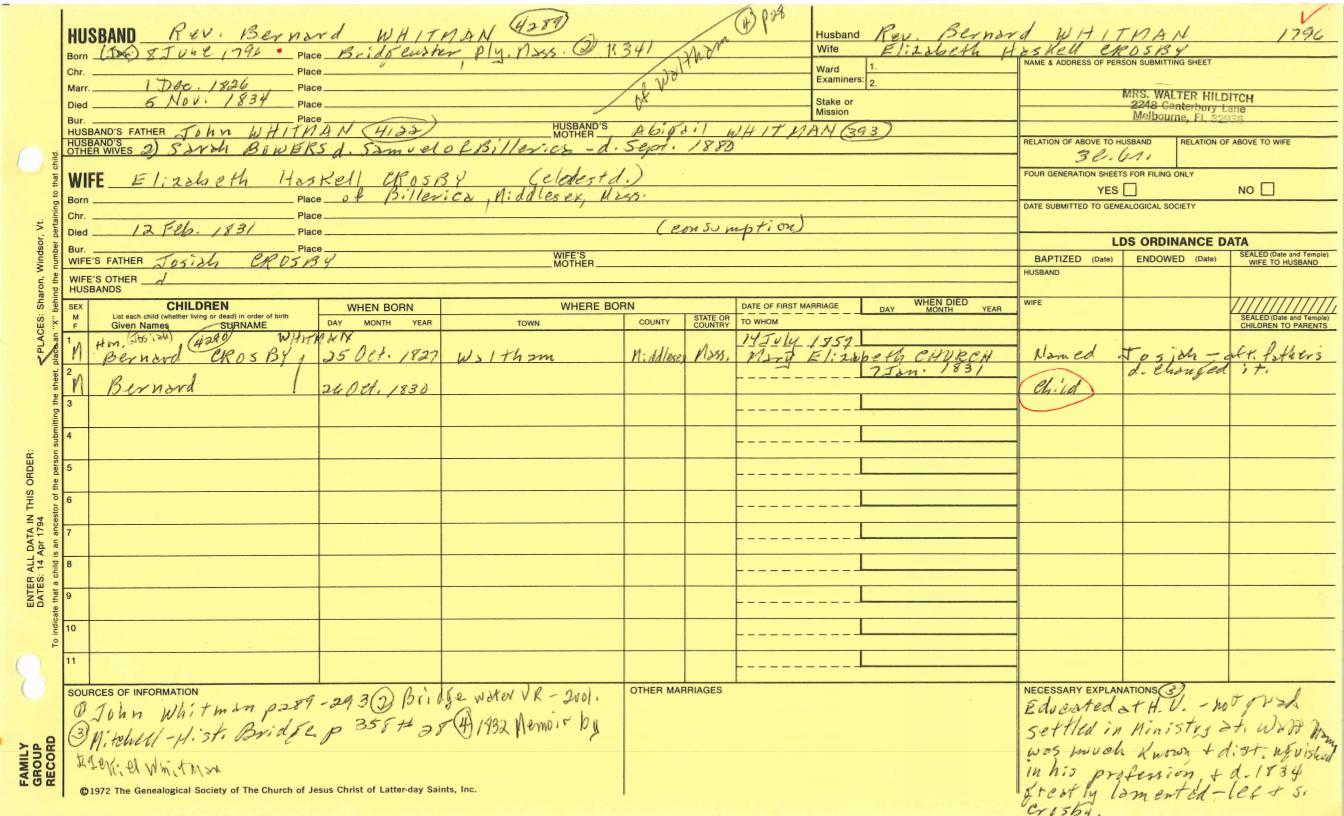 HUSBAND Rev. Bernard WHITMAN 4289
Born (Jan) 8 June 1796 Place Bridgewater, Ply. Mass. ② K341
of Waltham ④ p28
Chr. Place
Marr. 1 Dec. 1826 Place
Died 5 Nov. 1834 Place
Bur. Place
HUSBAND'S FATHER John WHITMAN 4122 HUSBAND'S MOTHER Abigail WHITMAN 393
HUSBAND'S OTHER WIVES 2) Sarah BOWERS d. Samuel of Billerica - d. Sept. 1880
WIFE Elizabeth Haskell CROSBY (eldest d.)
Born Place of Billerica, Middlesex, Mass.
Chr. Place
Died 12 Feb. 1831 Place (consumption)
Bur. Place
WIFE'S FATHER Josiah CROSBY WIFE'S MOTHER
WIFE'S OTHER HUSBANDS
Husband Rev. Bernard WHITMAN 1796
Wife Elizabeth Haskell CROSBY
Ward Examiners: 1.
2.
Stake or Mission
NAME & ADDRESS OF PERSON SUBMITTING SHEET
MRS. WALTER HILDITCH
2248 Canterbury Lane
Melbourne, FL 32935
RELATION OF ABOVE TO HUSBAND RELATION OF ABOVE TO WIFE
FOUR GENERATION SHEETS FOR FILING ONLY
YES NO
DATE SUBMITTED TO GENEALOGICAL SOCIETY
LDS ORDINANCE DATA
BAPTIZED (Date) ENDOWED (Date) SEALED (Date and Temple) WIFE TO HUSBAND
HUSBAND
WIFE
SEALED (Date and Temple) CHILDREN TO PARENTS
SEX M F
CHILDREN
List each child (whether living or dead) in order of birth
Given Names SURNAME
WHEN BORN
DAY MONTH YEAR
WHERE BORN
TOWN COUNTY STATE OR COUNTRY
DATE OF FIRST MARRIAGE
TO WHOM
WHEN DIED
DAY MONTH YEAR
1 Hon. (Josiah) 4290 WHITMAN 14 July 1852
M Bernard CROSBY 25 Oct. 1827 Waltham Middlesex Mass. Mary Elizabeth CHURCH Named Josiah - aft. fathers
d. changed it.
2 7 Jan. 1831
M Bernard 26 Oct. 1830 Child
3
4
5
6
7
8
9
10
11
SOURCES OF INFORMATION
① John Whitman p289-293 ② Bridgewater VR - 2vol.
③ Mitchell - Hist. Bridge p 358 # 28 ④ 1832 Memoir by
Whitman
OTHER MARRIAGES
NECESSARY EXPLANATIONS ③
Educated at H. U. - not grad
settled in Ministry at
was much known + distinguished
in his profession, + d. 1834
greatly lamented - left s.
Crosby.
©1972 The Genealogical Society of The Church of Jesus Christ of Latter-day Saints, Inc.
FAMILY GROUP RECORD
ENTER ALL DATA IN THIS ORDER:
DATES: 14 Apr 1794
PLACES: Sharon, Windsor, Vt.
To indicate that a child is an ancestor of the person submitting the sheet, place an "X" behind the number pertaining to that child.